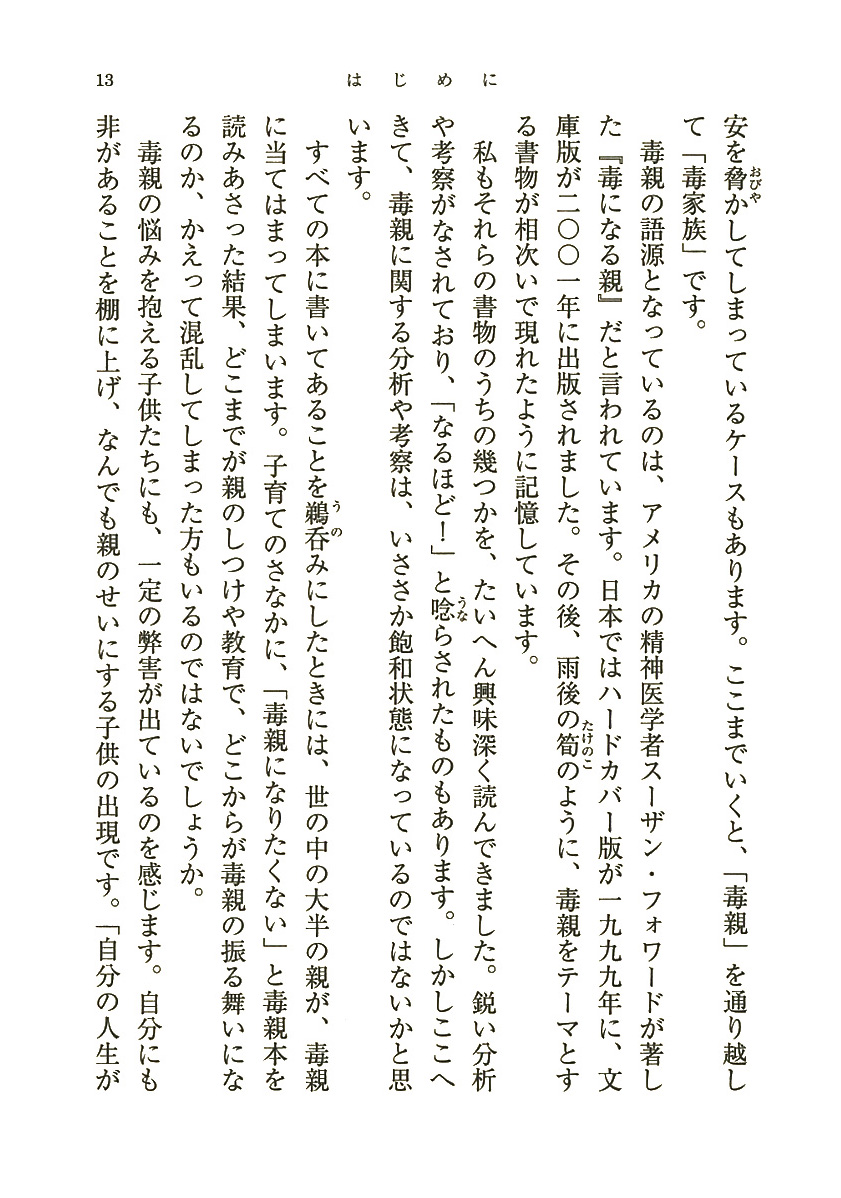 13
はじめに
安を脅かしてしまっているケースもあります。ここまでいくと、「毒親」を通り越し
て「毒家族」です。
毒親の語源となっているのは、アメリカの精神医学者スーザン・フォワードが著し
た『毒になる親』だと言われています。日本ではハードカバー版が一九九九年に、文
庫版が二〇〇一年に出版されました。その後、雨後の筍のように、毒親をテーマとす
る書物が相次いで現れたように記憶しています。
私もそれらの書物のうちの幾つかを、たいへん興味深く読んできました。鋭い分析
や考察がなされており、「なるほど！」と唸らされたものもあります。しかしここへ
きて、毒親に関する分析や考察は、いささか飽和状態になっているのではないかと思
います。
すべての本に書いてあることを鵜呑みにしたときには、世の中の大半の親が、毒親
に当てはまってしまいます。子育てのさなかに、「毒親になりたくない」と毒親本を
読みあさった結果、どこまでが親のしつけや教育で、どこからが毒親の振る舞いにな
るのか、かえって混乱してしまった方もいるのではないでしょうか。
毒親の悩みを抱える子供たちにも、一定の弊害が出ているのを感じます。自分にも
非があることを棚に上げ、なんでも親のせいにする子供の出現です。「自分の人生が
おびや
たけのこ
うな
うの